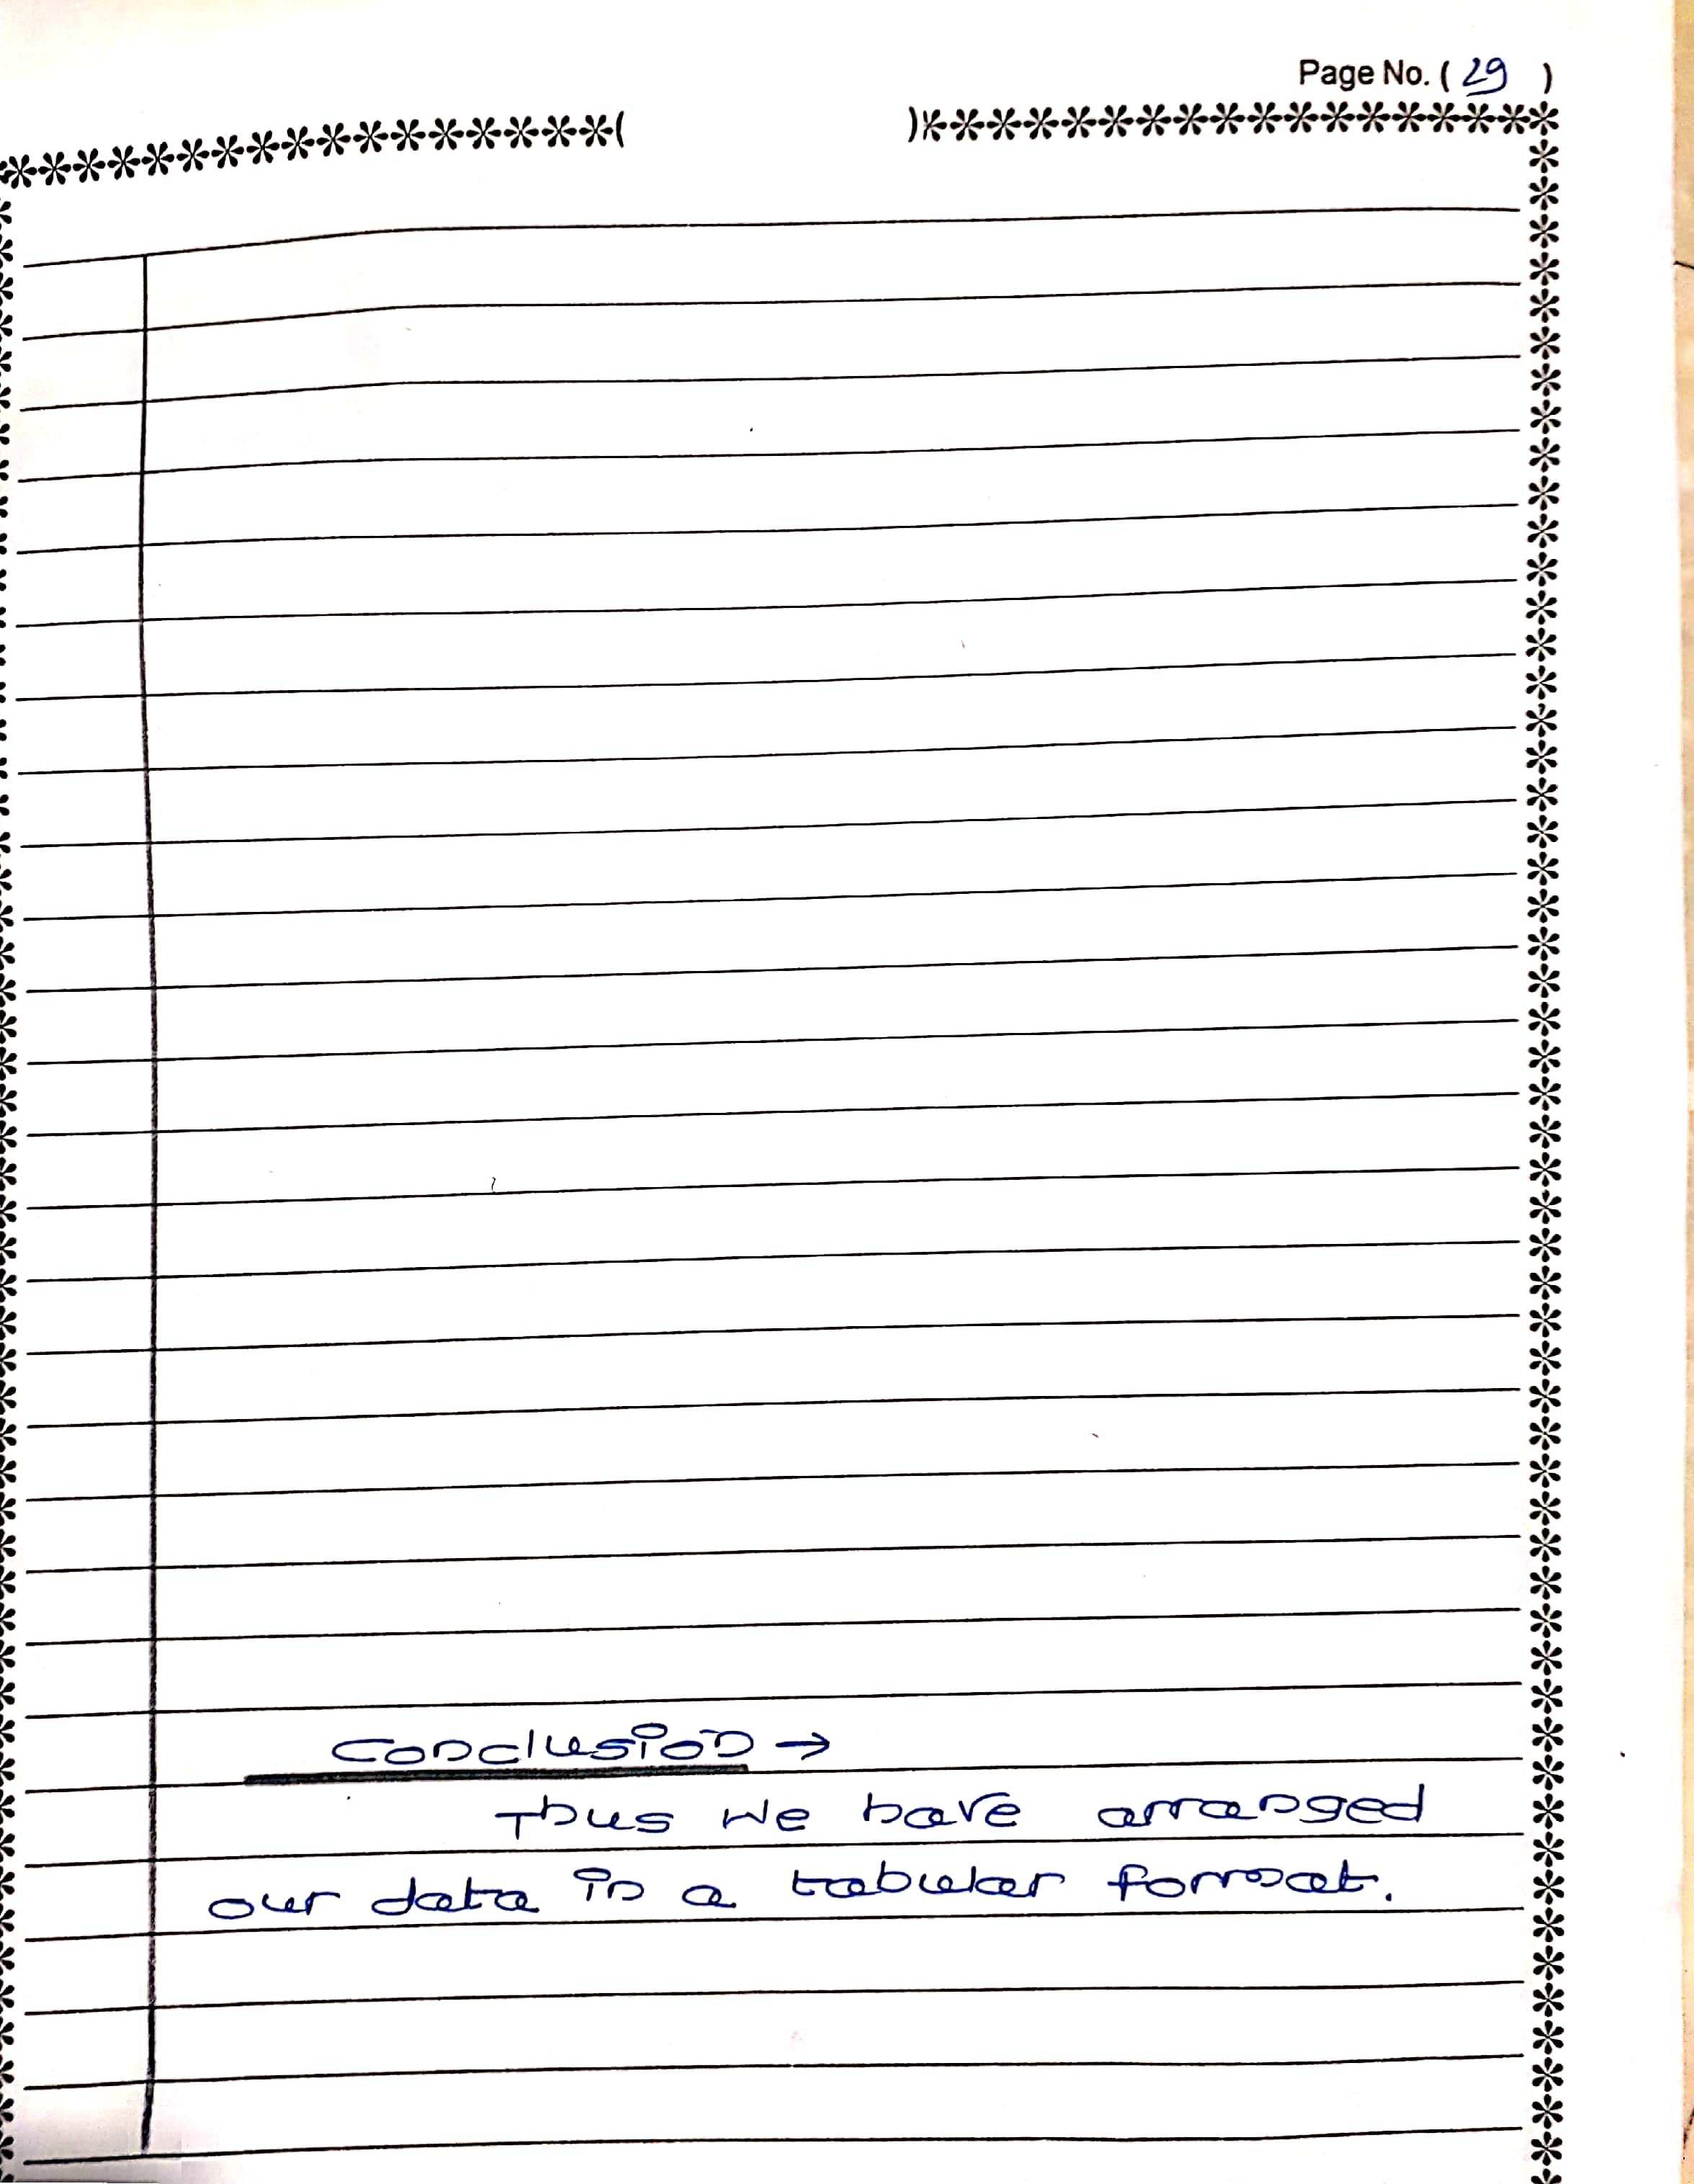 Page No. ( 29 )
Conclusion →
Thus We have arranged
our data in a tabular format.